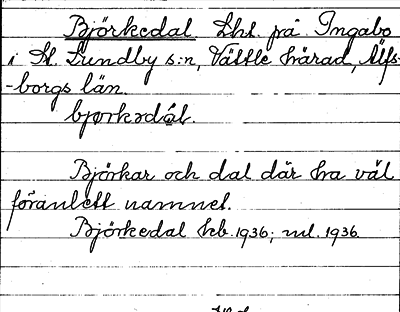 Björkedal. Lht. på Ingabo
i St. Lundby s:n, Vättle härad, Älfs-
-borgs län.
bjørkədál.
Björkar och dal där ha väl
föranlett namnet.
Björkedal kb. 1936; ml. 1936.